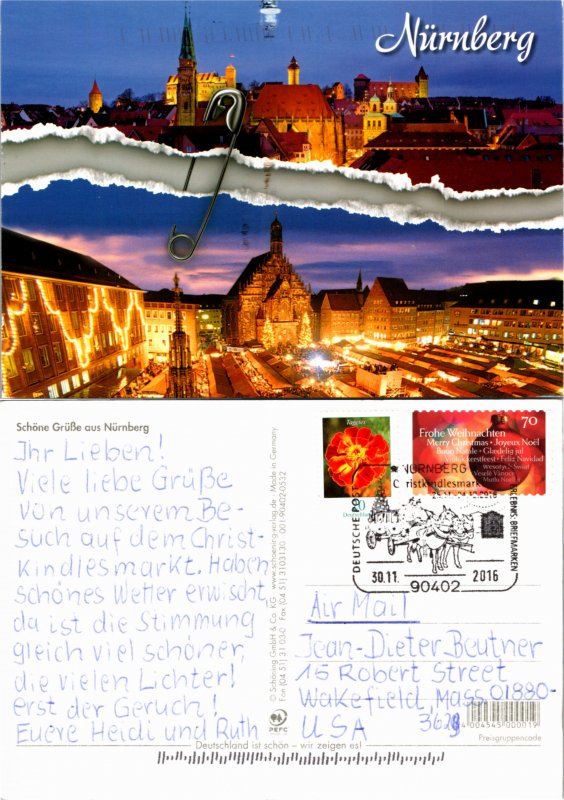 Nürnberg
Schöne Grüße aus Nürnberg
Ihr Lieben!
Viele liebe Grüße
von unserem Be-
such auf dem Christ-
kindlesmarkt. Haben
schönes Wetter erwischt,
da ist die Stimmung
gleich viel schöner,
die vielen Lichter!
erst der Geruch!
Euere Heidi und Ruth
© Schöning GmbH & Co. KG · www.schoening-verlag.de · Made in Germany
Fon (04 51) 31 03-0 Fax (04 51) 3103130 001-90402-0532
PEFC
Tagetes
20
Deutschland
70
Frohe Weihnachten
Merry Christmas · Joyeux Noël
Buon Natale · Glædelig jul
Feliz Navidad
Veselé Vánoce
Mutlu Noeller
NÜRNBERG
Christkindlesmarkt
DEUTSCHE POST
ERLEBNIS: BRIEFMARKEN
30.11. 2016
90402
Air Mail
Jean-Dieter Beutner
15 Robert Street
Wakefield, Mass. 01880-
USA
4 004545 000019
Preisgruppencode
Deutschland ist schön – wir zeigen es!